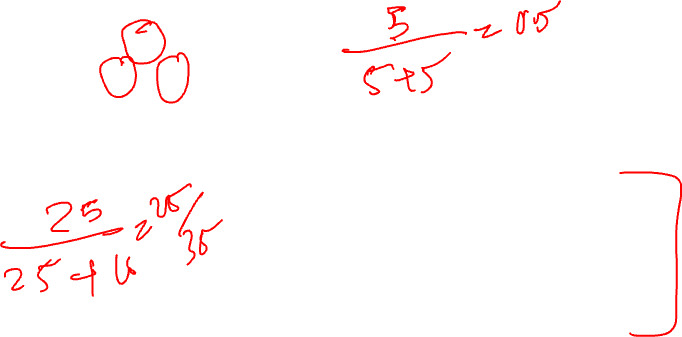 5/(5+5) = 05
25/(25+10) = 25/35